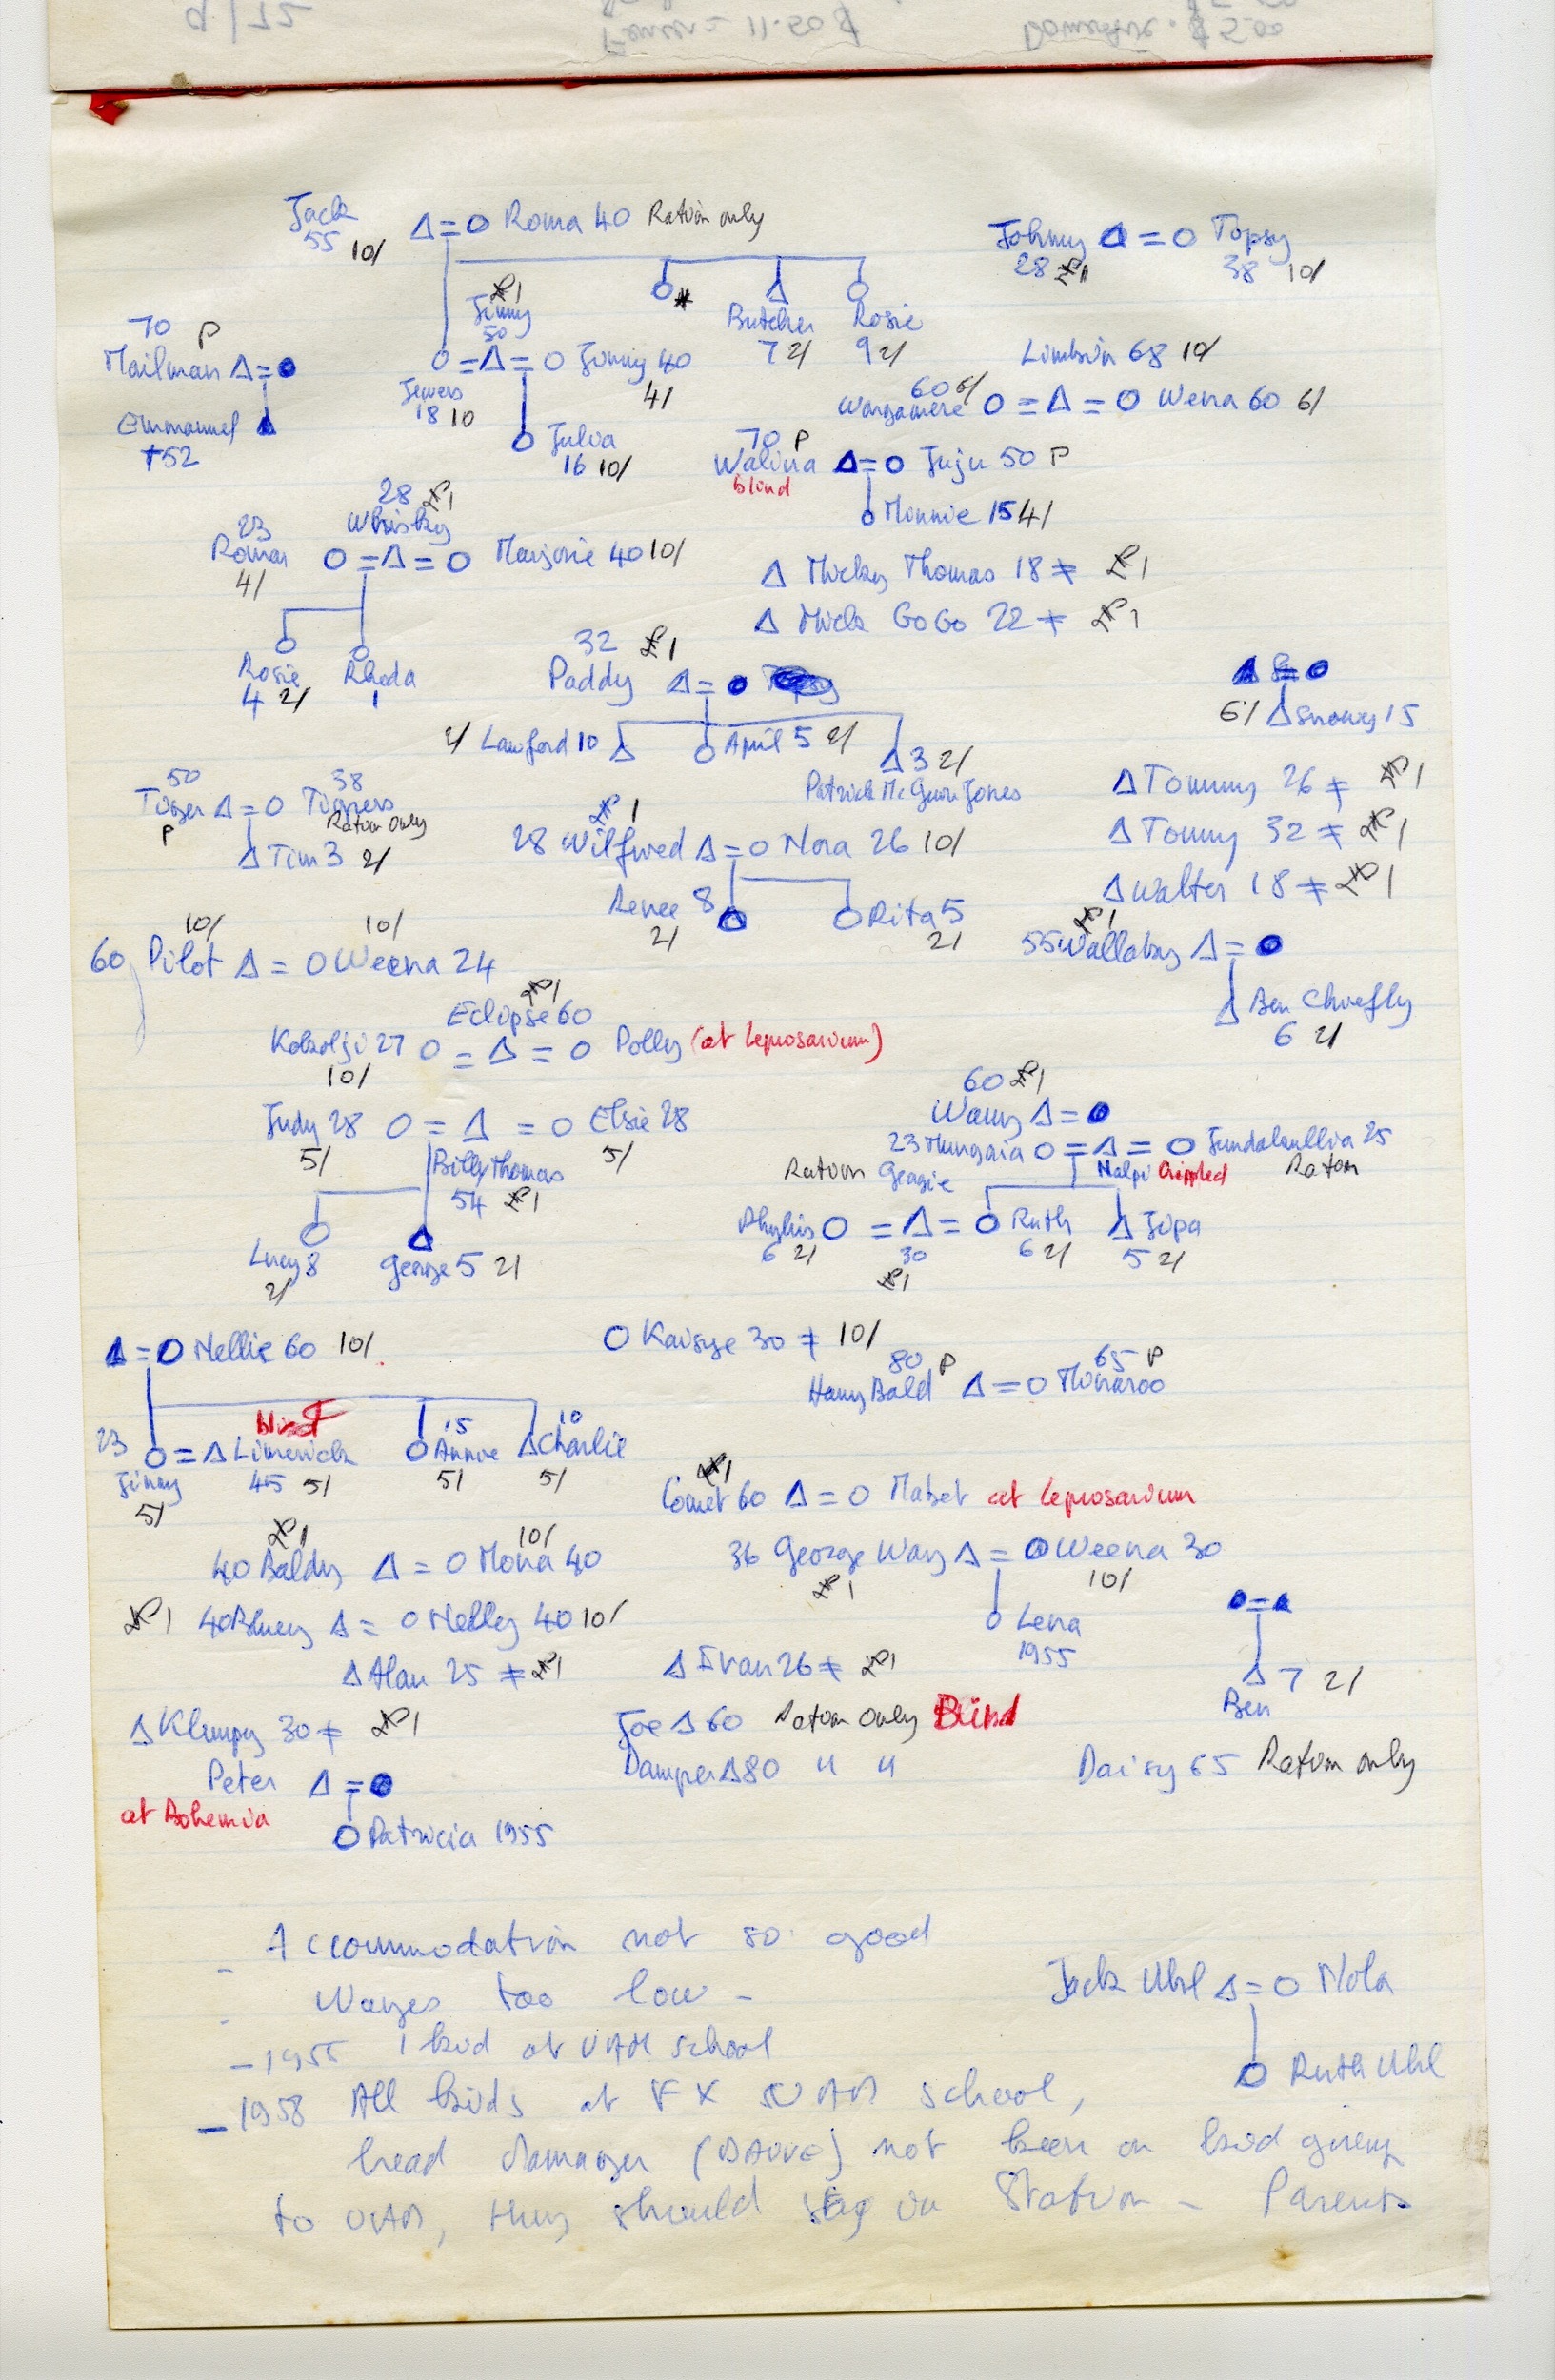 Jack Δ = O Roma 40 Ration only
55 10/
Johnny Δ = O Topsy
28 £1 38 10/
£1
Jimmy
50
Butcher Rosie
7 2/ 9 2/
70 P
Mailman Δ = O
O = Δ = O Jenny 40
4/
18 10
Emmanuel
†52
Julia
16 10/
Limbin 68 10/
60 6/
O = Δ = O Wena 60 6/
70 P
Walina Δ = O Juju 50 P
blind
Monnie 15 4/
28 £1
23 Whisky
Roma O = Δ = O Marjorie 40 10/
4/
Rosie Rhoda
4 2/ 1
Δ Micky Thomas 18 ≠ £1
Δ Mick GoGo 22 ≠ £1
32 £1
Paddy Δ = O
2/ Lawford 10 Δ O April 5 2/ Δ 3 2/
Patrick McGuire Jones
Δ = O
6/ Δ Snowy 15
50 38
Tiger Δ = O Tigress
P Ration only
Δ Tim 3 2/
£1
28 Wilfred Δ = O Nora 26 10/
Renee 8 O Rita 5
2/ 2/
Δ Tommy 26 ≠ £1
Δ Tommy 32 ≠ £1
Δ Walter 18 ≠ £1
10/ 10/
60 Pilot Δ = O Weena 24
£1
55 Wallaby Δ = O
Δ Ben Chiefly
6 2/
£1
Eclipse 60
27 O = Δ = O Polly (at Leprosarium)
10/
Judy 28 O = Δ = O Elsie 28
5/ 5/
Billy Thomas
54 £1
Lucy 8 George 5 2/
2/
60 £1
Δ = O
23 Mungaia O = Δ = O Jundalnullia 25
Ration Nalpi Crippled Ration
Georgie
Phyllis O = Δ = O Ruth Δ Jipa
6 2/ 30 6 2/ 5 2/
£1
Δ = O Nellie 60 10/
blind
23 O = Δ Limerick O Annie 15 Δ Charlie 10
Jinny 45 5/ 5/ 5/
5/
O Kaisye 30 ≠ 10/
80 P 65 P
Harry Bald Δ = O Minaroo
£1
Comet 60 Δ = O Mabel at Leprosarium
£1 10/
40 Baldy Δ = O Mona 40
36 George Way Δ = O Weena 30
£1 10/
O Lena
1955
£1 40 Bluey Δ = O Nelly 40 10/
O = Δ
Δ 7 2/
Ben
Δ Alan 25 ≠ £1
Δ Ivan 26 ≠ £1
Δ Klumpy 30 ≠ £1
Joe Δ 60 Ration only Blind
Damper Δ 80 " "
Daisy 65 Ration only
Peter Δ = O
at Bohemia
O Patricia 1955
Accommodation not so good
- Wages too low -
- 1955 1 kid at UAM school
- 1958 All kids at FX UAM school,
head manager not keen on kid going
to UAM, they should stay on Station - Parents
Jack Uhl Δ = O Nola
O Ruth Uhl